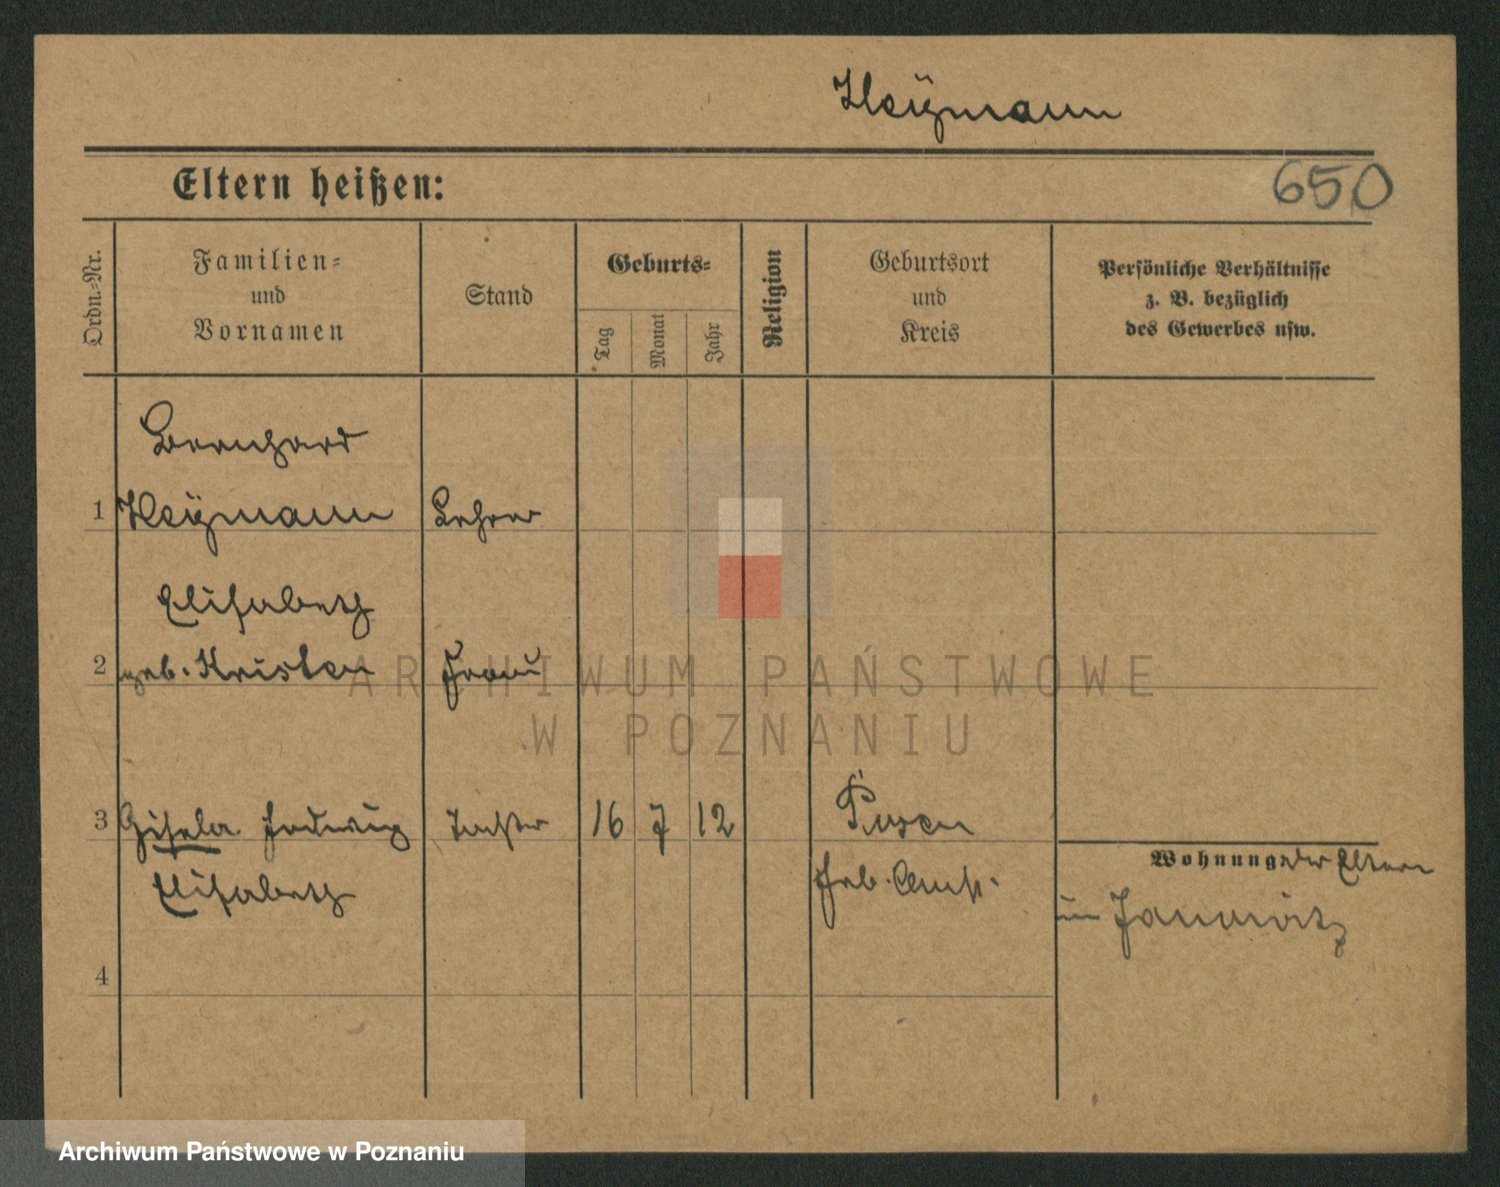 Heÿmann
Eltern heißen:
650
Ordn.-Nr.
Familien-
und
Vornamen
Stand
Geburts-
Tag
Monat
Jahr
Religion
Geburtsort
und
Kreis
Persönliche Verhältnisse
z. B. bezüglich
des Gewerbes usw.
Bernhard
1 Heÿmann Lehrer
Elisabeth
2 geb. Kristen Frau
3 Gisela Hedwig Tochter 16 7 12 Posen
Elisabeth
Heb. Anst.
Wohnung der Eltern
in Jannowitz
4
ARCHIWUM PAŃSTWOWE
W POZNANIU
Archiwum Państwowe w Poznaniu